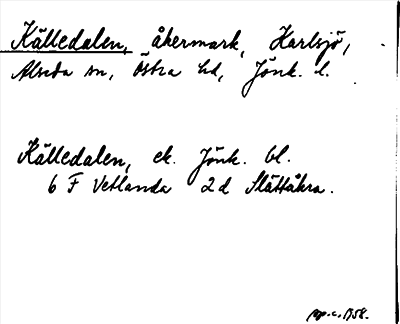 Källedalen, åkermark, Karlsjö,
Alseda sn, Östra hd, Jönk. l.
Källedalen, ek. Jönk. bl.
6 F Vetlanda 2d Slättåkra.
1958.